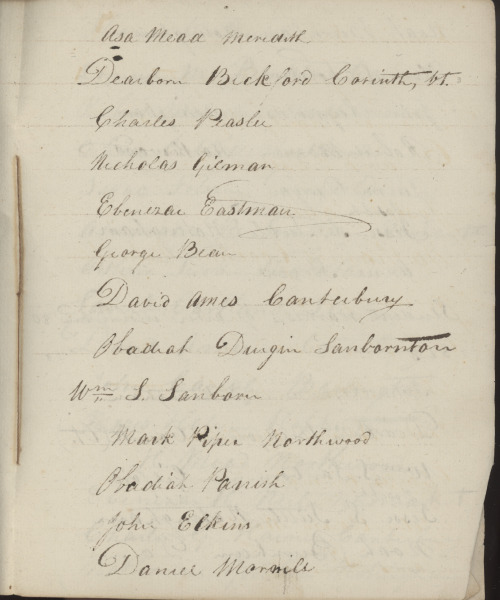 Asa Mead Meredith
Dearborn Bickford Corinth, Vt.
Charles Peaslee
Nicholas Gilman
Ebenezar Eastman
George Bean
David Ames Canterbury
Obadiah Durgin Sanbornton
Wm S. Sanborn
Mark Piper Northwood
Obadiah Parrish
John Elkins
Daniel Morrill